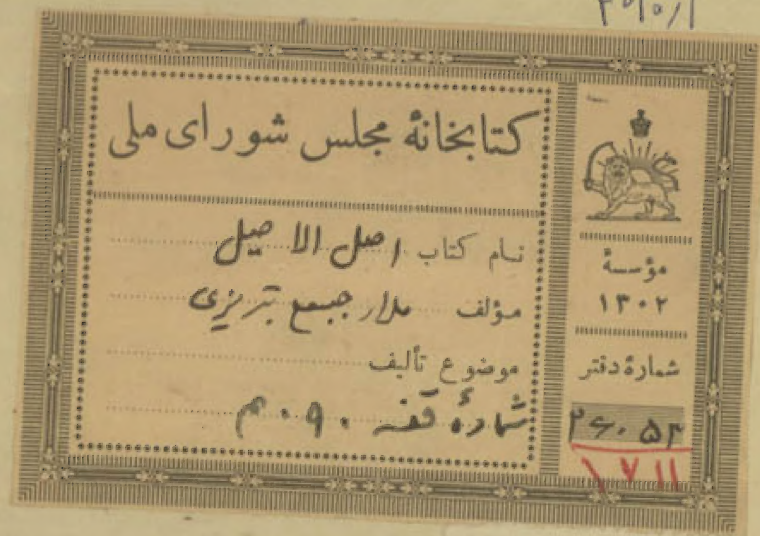 کتابخانهٔ مجلس شورای ملی
نام کتاب اصل الاصیل
مؤلف ملا رجبعلی تبریزی
موضوع تألیف
شمارهٔ قفسه ۴۰۹۰
مؤسسهٔ
۱۳۰۲
شمارهٔ دفتر
۲۶۰۵۲
۱۷۱۱